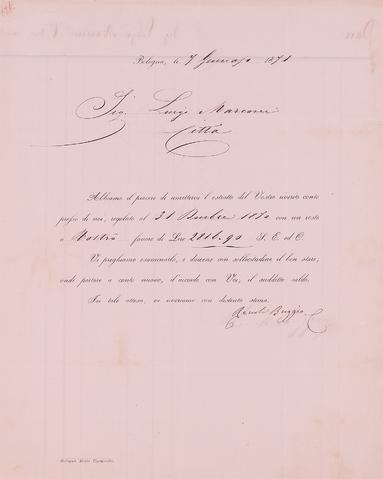 Bologna, li 7 Gennajo 1871
Sig. Luigi Marconi
Città
Abbiamo il piacere di rimettervi l'estratto del Vostro riverito conto
presso di noi, regolato al 31 Dicembre 1870 con un resto
a Nostro favore di Lire 2816.90 S. E. ed O.
Vi preghiamo esaminarlo, e darcene con sollecitudine il ben stare,
onde portare a conto nuovo, d'accordo con Voi, il suddetto saldo.
In tale attesa, vi riveriamo con distinta stima.
Bologna